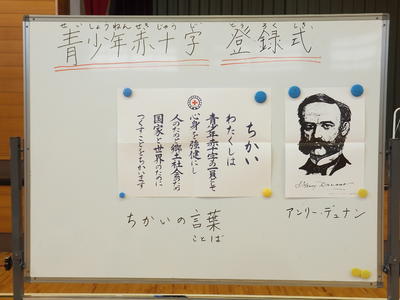 せいしょうねんせきじゅうじ とうろくしき
青少年赤十字 登録式
ちかい
わたくしは
青少年赤十字の一員として
心身を強健にし
人のためと郷土社会のため
国家と世界のために
つくすことをちかいます
ちかいの言葉
ことば
Henry Dunant
アンリー・デュナン